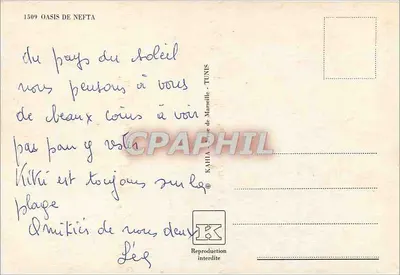 1509 OASIS DE NEFTA
du pays du soleil
nous pensons à vous
de beaux coins à voir
pas pour y rester
Kiki est toujours sur la
plage
Amitiés de nous deux
Léa
CPAPHIL
© KAHIA de Marseille - TUNIS
K
Reproduction
interdite